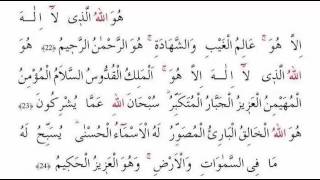 هُوَ اللّٰهُ الَّذٖى لَٓا اِلٰهَ
اِلَّا هُوَ ۚ عَالِمُ الْغَيْبِ وَالشَّهَادَةِ ۚ هُوَ الرَّحْمٰنُ الرَّحٖيمُ (22) هُوَ
اللّٰهُ الَّذٖى لَٓا اِلٰهَ اِلَّا هُوَ ۚ اَلْمَلِكُ الْقُدُّوسُ السَّلَامُ الْمُؤْمِنُ
الْمُهَيْمِنُ الْعَزٖيزُ الْجَبَّارُ الْمُتَكَبِّرُ ۚ سُبْحَانَ اللّٰهِ عَمَّا يُشْرِكُونَ (23)
هُوَ اللّٰهُ الْخَالِقُ الْبَارِئُ الْمُصَوِّرُ لَهُ الْاَسْمَٓاءُ الْحُسْنٰى ۚ يُسَبِّحُ لَهُ
مَا فِى السَّمٰوَاتِ وَالْاَرْضِ ۚ وَهُوَ الْعَزٖيزُ الْحَكٖيمُ (24)